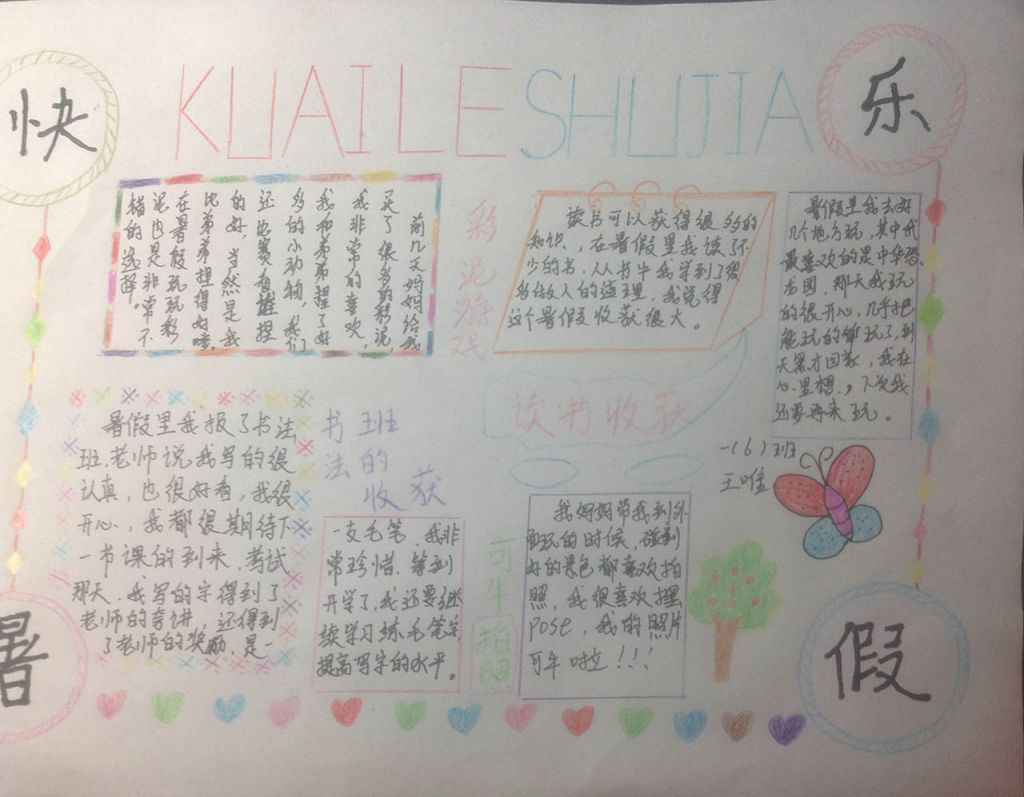 快
KUAILE SHUJIA
乐
前几天妈妈给我
买了很多的彩泥
我非常的喜欢，
我和弟弟捏了好
多的小动物，我们
还比赛看谁捏
的好，当然是我
比弟弟捏得好喽，
在暑假玩玩彩
泥也是非常不
错的选择。
彩泥游戏
读书可以获得很多的
知识，在暑假里我读了不
少的书，从书中我学到了很
多做人的道理，我觉得
这个暑假收获很大。
读书收获
暑假里我去好
几个地方玩，其中我
最喜欢的是中华恐
龙园，那天我玩
的很开心，几乎把
能玩的都玩了，到
天黑才回家，我在
心里想，下次我
还要再来玩。
一（6）班
王唯
暑假里我报了书法
班，老师说我写的很
认真，也很好看，我很
开心，我都很期待下
一书课的到来，考试
那天，我写的字得到了
老师的夸讲，还得到
了老师的奖励，是一
书班
法的
收获
一支毛笔，我非
常珍惜，等到
开学了，我还要继
续学习练毛笔字
提高写字的水平。
可牛拍照
我妈妈带我到外
面玩的时候，碰到
好的景色都喜欢拍
照，我很喜欢摆
POSE，我的照片
可牛啦！！！
暑
假